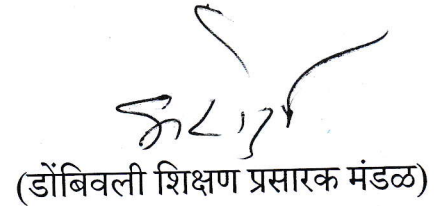 (डोंबिवली शिक्षण प्रसारक मंडळ)